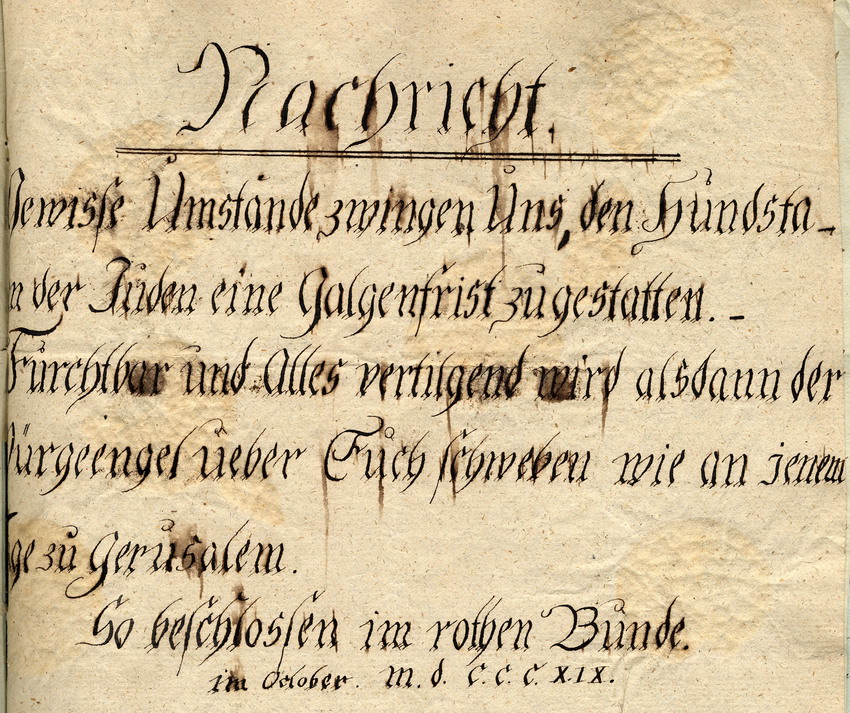 Nachricht.
Gewisse Umstände zwingen Uns, den Hundsta-
n der Juden eine Galgenfrist zugestatten. -
Furchtbar und Alles vertilgend wird alsdann der
Würgeengel ueber Euch schweben wie an jenem
ge zu Gerusalem.
So beschlossen im rothen Bunde.
im October. M. d. C. C. C. XIX.